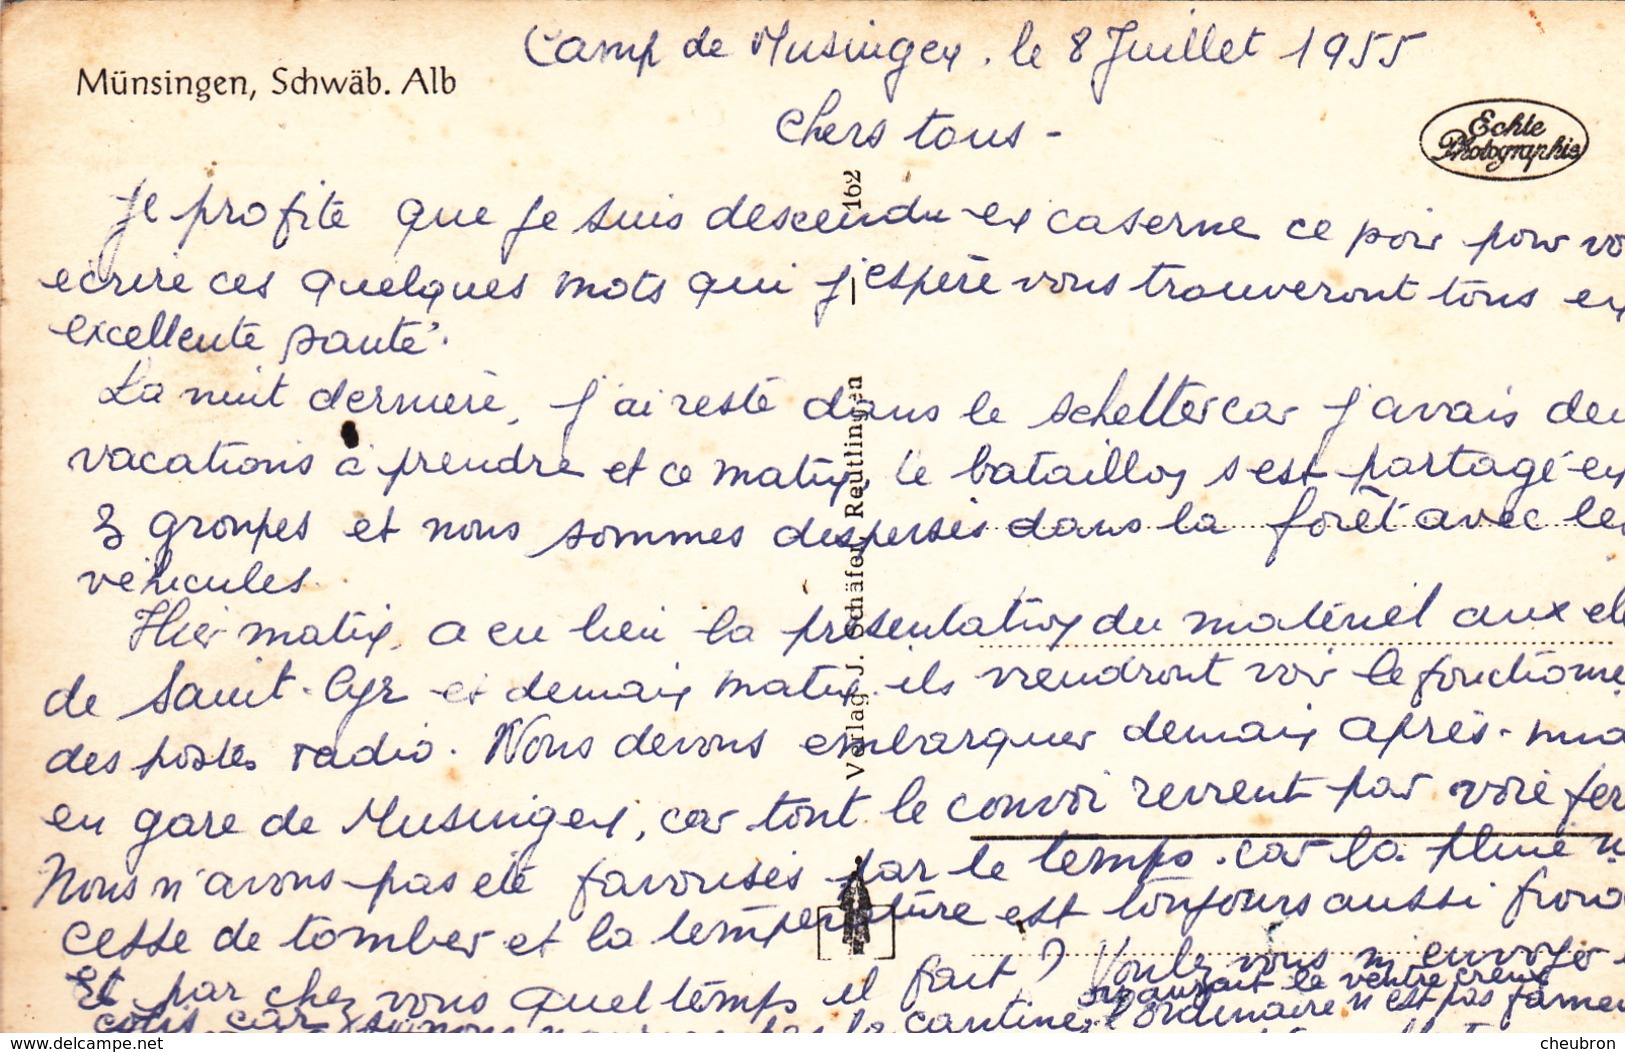 Camp de Musingen. le 8 Juillet 1955
Münsingen, Schwäb. Alb
Chers tous -
Echte
Photographie
Je profite que je suis descendu en caserne ce soir pour vo
ecrire ces quelques mots qui j'espère vous trouveront tous en
excellente santé.
La nuit dernière, j'ai resté dans le schelter car j'avais deu
vacations à prendre et ce matin, le bataillon s'est partagé en
3 groupes et nous sommes dispersés dans la forêt avec les
véhicules.
Hier matin, a eu lieu la présentation du matériel aux elè
de Saint-Cyr et demain matin ils viendront voir le fonctionne
des postes radio. Nous devons embarquer demain après-mid
en gare de Musingen, car tout le convoi revient par voie fer
Nous n'avons pas été favorisés par le temps. car la pluie n'
cesse de tomber et la température est toujours aussi froid
Et par chez vous quel temps il fait? Voulez vous m'envoyer
colis car sinon la cantine, l'ordinaire n'est pas fameu
on aurait le ventre creux
Verlag J. Schäfer, Reutlingen
162
delcampe.net
cheubron